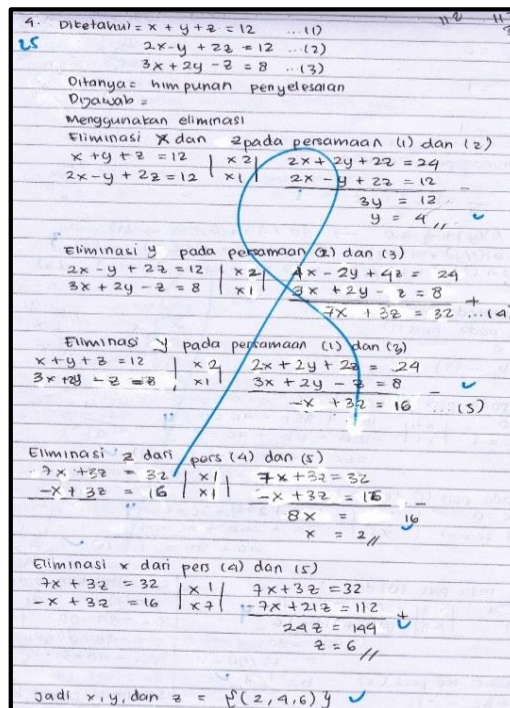 4. Diketahui = x + y + z = 12 ... (1)
25
2x - y + 2z = 12 ... (2)
3x + 2y - z = 8 ... (3)
Ditanya = himpunan penyelesaian
Dijawab =
Menggunakan eliminasi
Eliminasi x dan z pada persamaan (1) dan (2)
x + y + z = 12 | x2 | 2x + 2y + 2z = 24
2x - y + 2z = 12 | x1 | 2x - y + 2z = 12 -
3y = 12
y = 4 //
Eliminasi y pada persamaan (2) dan (3)
2x - y + 2z = 12 | x2 | 4x - 2y + 4z = 24
3x + 2y - z = 8 | x1 | 3x + 2y - z = 8 +
7x + 3z = 32 ... (4)
Eliminasi y pada permaan (1) dan (3)
x + y + z = 12 | x2 | 2x + 2y + 2z = 24
3x + 2y - z = 8 | x1 | 3x + 2y - z = 8 -
-x + 3z = 16 ... (5)
Eliminasi z dari pers (4) dan (5)
7x + 3z = 32 | x1 | 7x + 3z = 32
-x + 3z = 16 | x1 | -x + 3z = 16 -
8x = 16
x = 2 //
Eliminasi x dari pers (4) dan (5)
7x + 3z = 32 | x1 | 7x + 3z = 32
-x + 3z = 16 | x7 | -7x + 21z = 112 +
24z = 144
z = 6 //
Jadi x, y, dan z = {(2, 4, 6)}